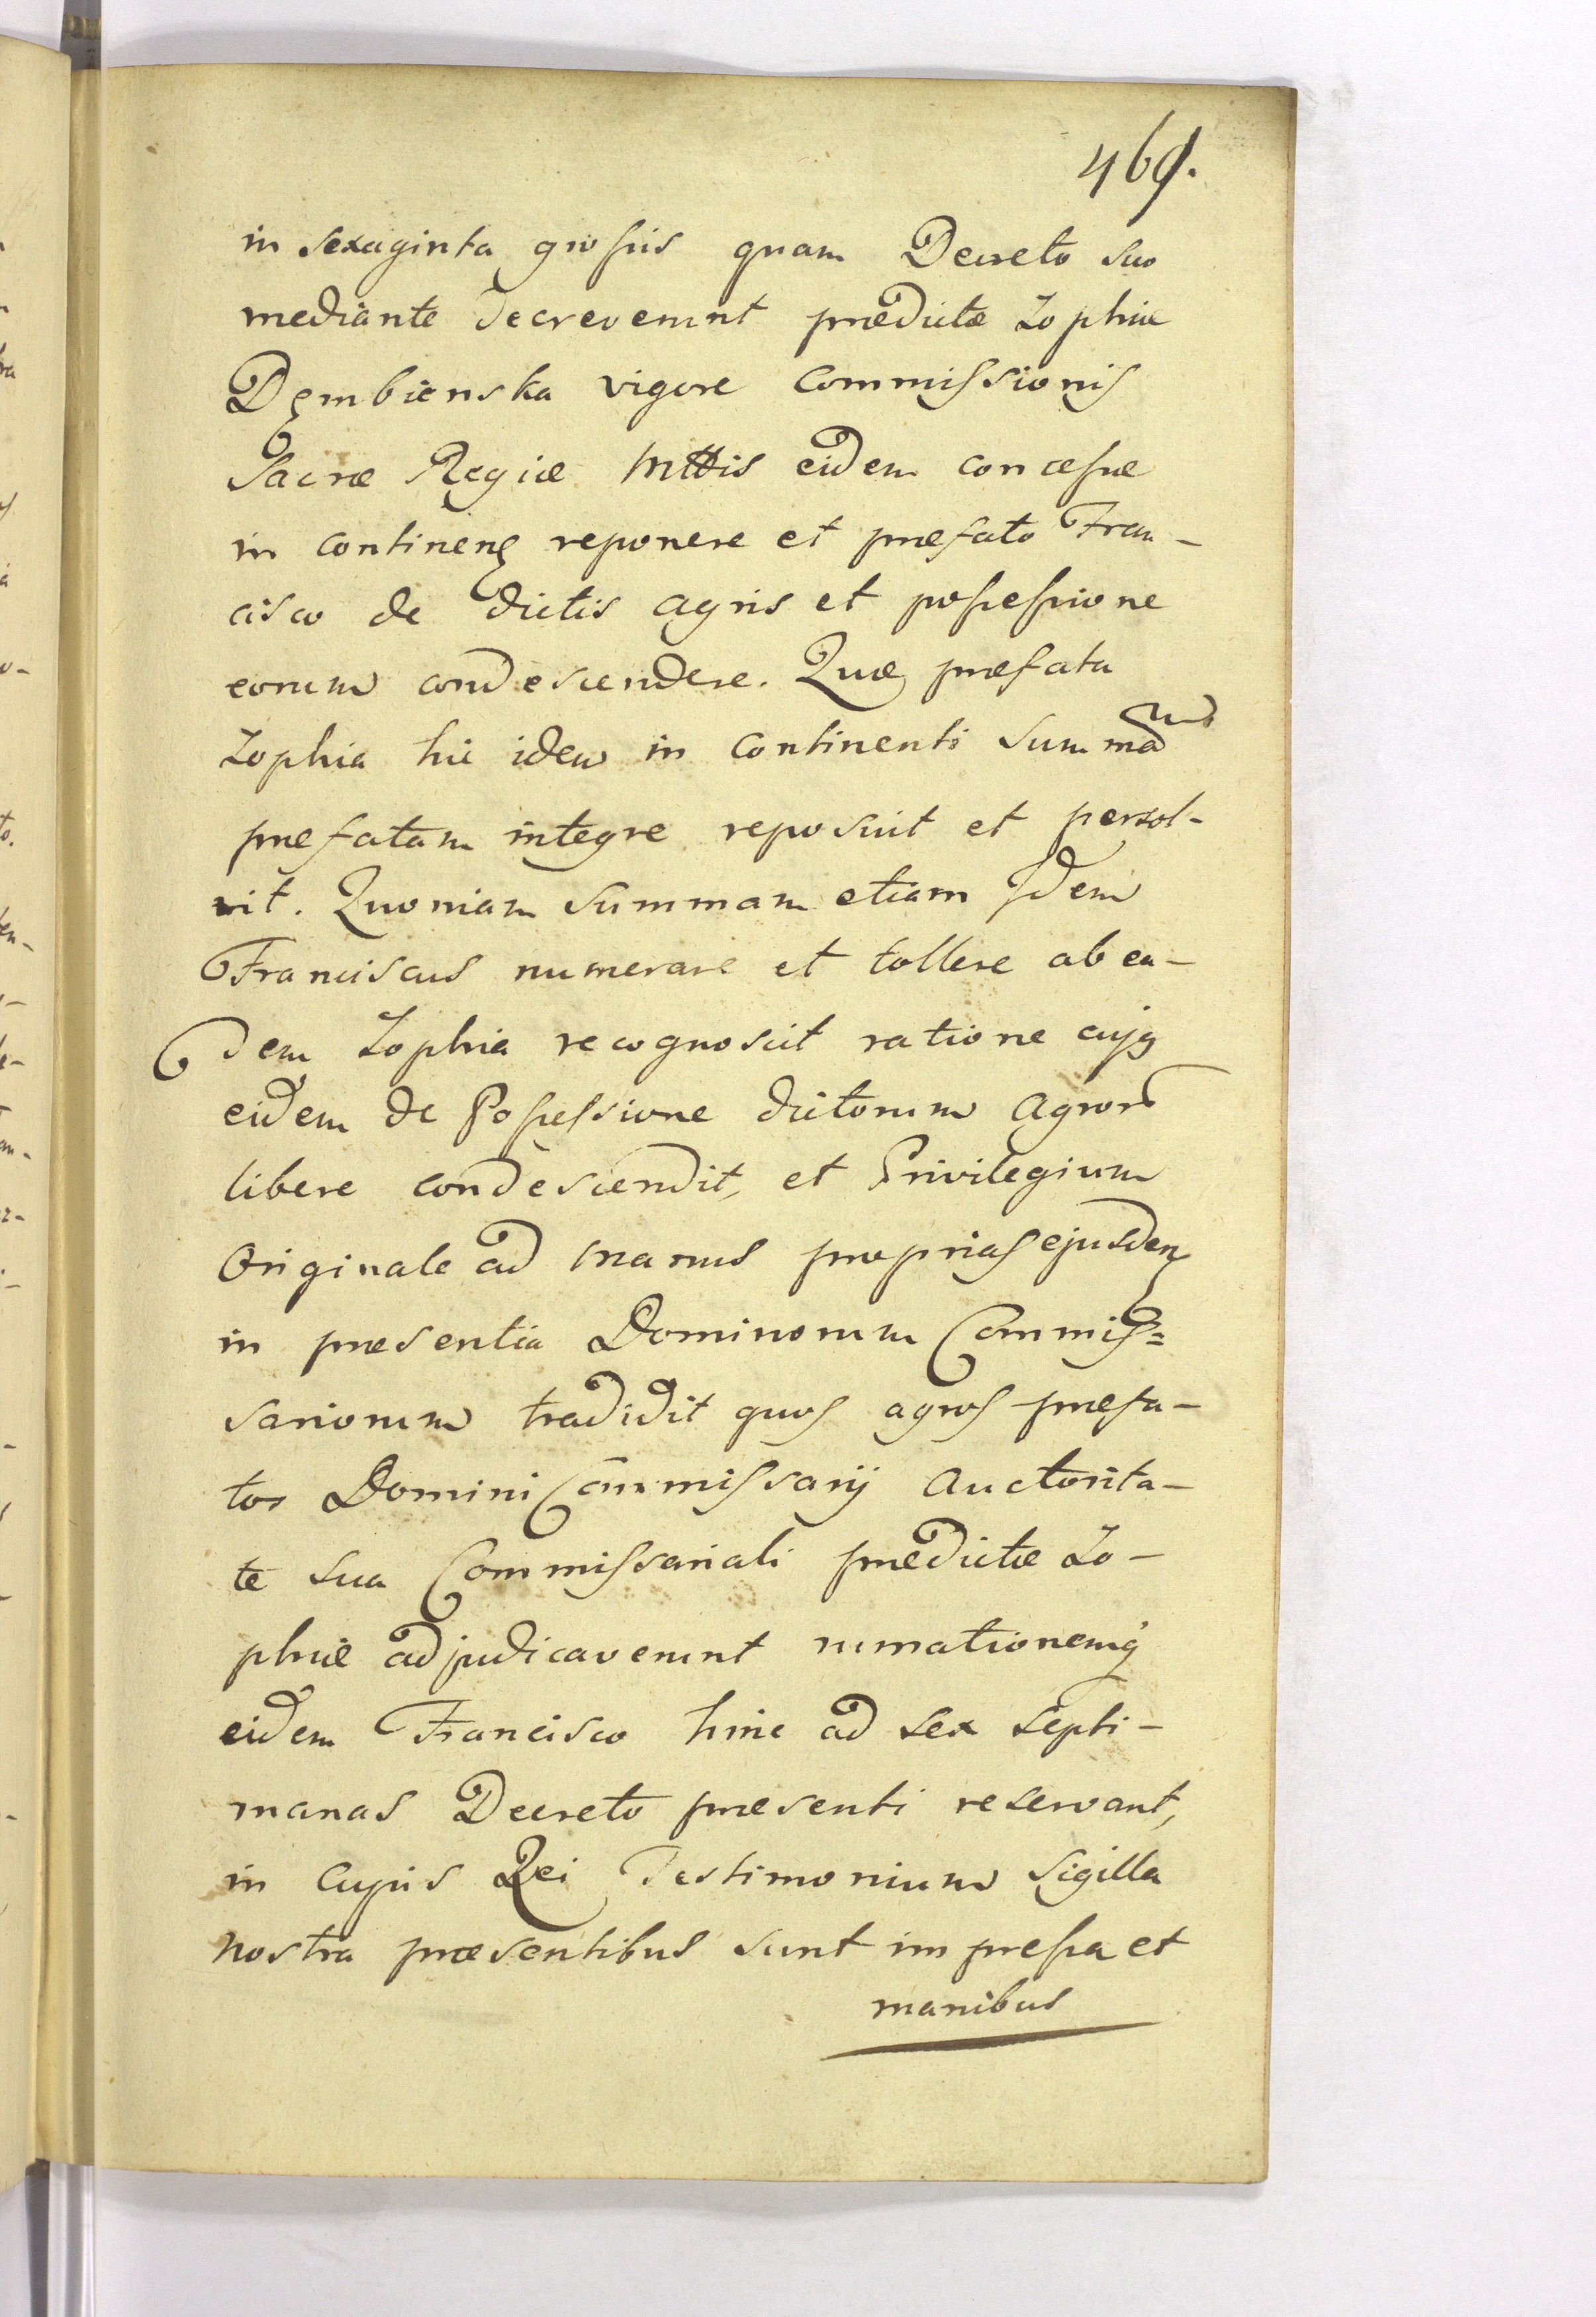 469.
in sexaginta grossis quam Decreto suo
mediante decreverunt prædictæ Zophiæ
Dęmbienska vigore Commissionis
Sacræ Regiæ Mttis eidem concessæ
in continenς reponere et præfato Fran-
cisco de dictis agris et possessione
eorum condescendere. Quæ præfata
Zophia hic idem in continenti summam
præfatam integre reposuit et persol-
vit. Quoniam summam etiam Idem
Franciscus numerare et tollere ab ea-
dem Zophia recognoscit ratione cujq
eidem de Possessione dictorum agror
libere condescendit, et Privilegium
Originale ad manus proprias ejusdem
in præsentia Dominorum Commis=
sariorum tradidit quos agros præfa-
tos Domini Commissarij Auctorita-
te sua Commissariali prædictæ Zo-
phiæ adjudicaverunt rumationemq
eidem Francisco hinc ad sex septi-
manas Decreto præsenti reservant,
in Cujus Rei Testimonium Sigilla
nostra præsentibus sunt impressa et
manibus